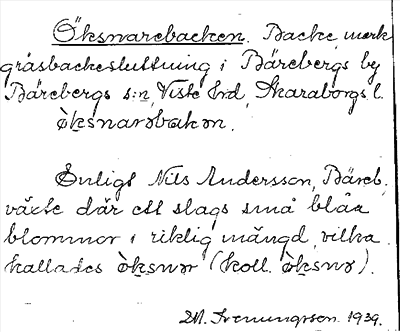 Öksnarebacken. Backe, mark
gräsbackesluttning i Bärebergs by
Bärebergs s:n, Viste hrd, Skaraborgs l.
ò̤ksnarəbakən.
Enligt Nils Andersson, Bäreb.
växte där ett slags små blåa
blommor i riklig mängd, vilka
kallades ò̤ksnər (koll. ò̤ksnə).
M. 1939.